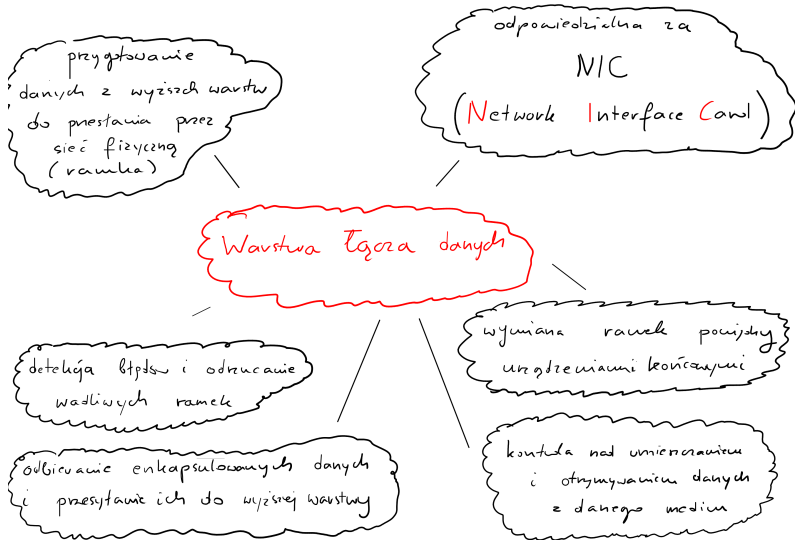 przygotowanie
danych z wyższch warstw
do przesłania przez
sieć fizyczną
(ramka)
odpowiedzialna za
NIC
(Network Interface Card)
Warstwa łącza danych
detekcja błędów i odrzucanie
wadliwych ramek
wymiana ramek pomiędzy
urządzeniami końcowymi
odbieranie enkapsulowanych danych
i przesyłanie ich do wyższej warstwy
kontrola nad umieszczaniem
i otrzymywaniem danych
z danego medium